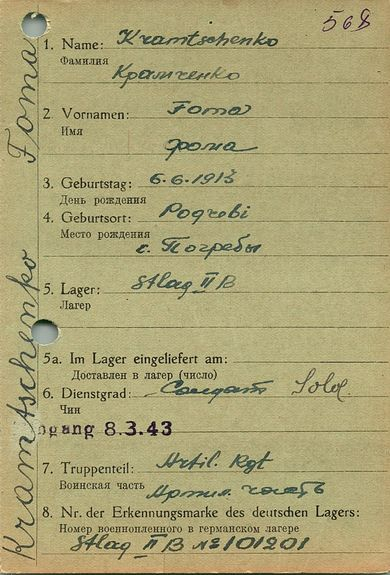 568
Kramtschenko Foma
1. Name: Kramtschenko
Фамилия
Крамченко
2. Vornamen: Foma
Имя
Фома
3. Geburtstag: 6.6.1913
День рождения
4. Geburtsort: Pogrebi
Место рождения
с. Погребы
5. Lager: Stlag II B
Лагер
5a. Im Lager eingeliefert am:
Доставлен в лагер (число)
6. Dienstgrad: Солдат Sold.
Чин
ngang 8.3.43
7. Truppenteil: Artil. Rgt
Воинская часть Артил. часть
8. Nr. der Erkennungsmarke des deutschen Lagers:
Номер военнопленного в германском лагере
Stlag II B № 101201